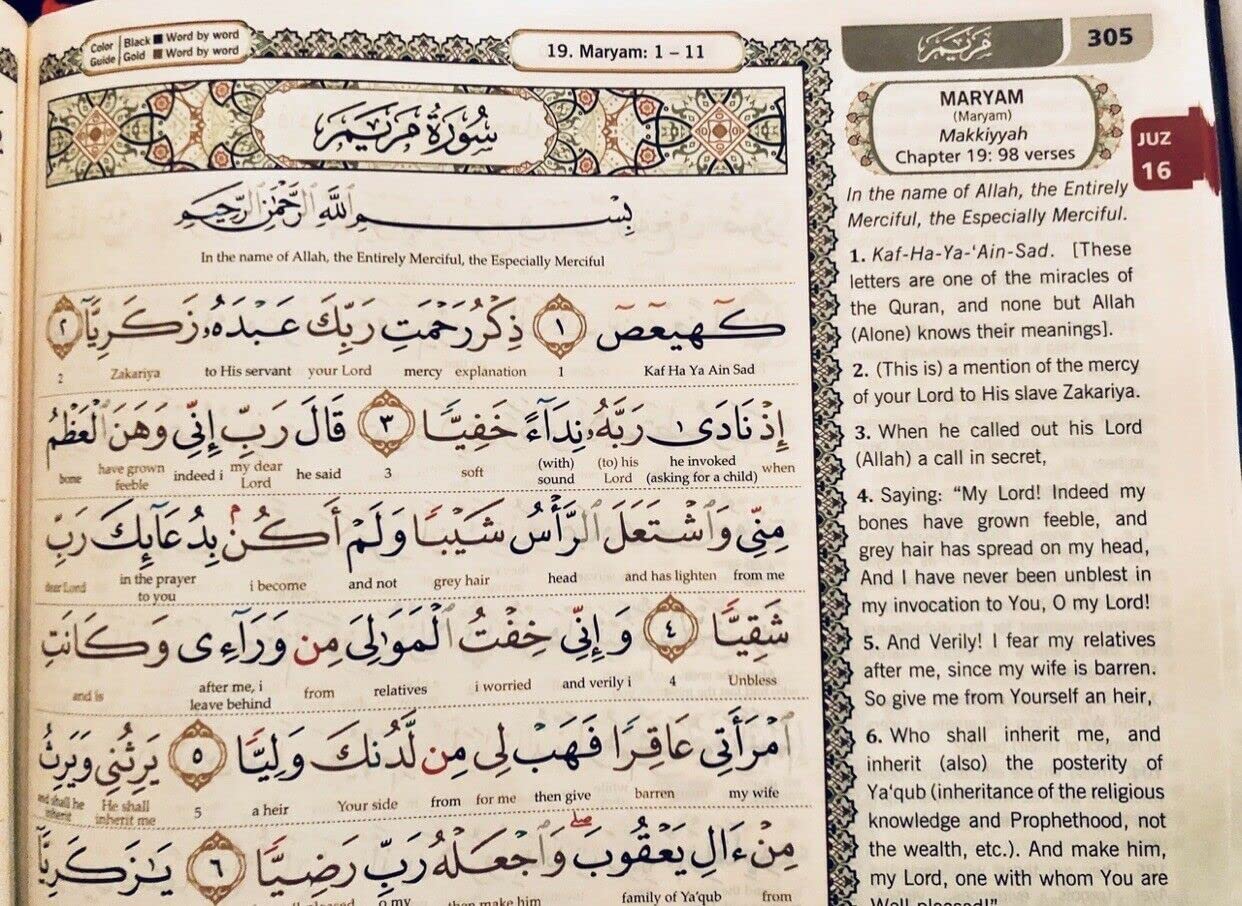 Color Guide | Black ■ Word by word
Gold ■ Word by word
19. Maryam: 1 – 11
سُورَةُ مَرْيَمَ
بِسْمِ ٱللَّهِ ٱلرَّحْمَٰنِ ٱلرَّحِيمِ
In the name of Allah, the Entirely Merciful, the Especially Merciful
كٓهيعٓصٓ ١ ذِكْرُ رَحْمَتِ رَبِّكَ عَبْدَهُۥ زَكَرِيَّآ ٢
2 Zakariya to His servant your Lord mercy explanation 1 Kaf Ha Ya Ain Sad
إِذْ نَادَىٰ رَبَّهُۥ نِدَآءً خَفِيًّا ٣ قَالَ رَبِّ إِنِّى وَهَنَ ٱلْعَظْمُ
bone have grown feeble indeed i my dear Lord he said 3 soft (with) sound (to) his Lord he invoked (asking for a child) when
مِنِّى وَٱشْتَعَلَ ٱلرَّأْسُ شَيْبًا وَلَمْ أَكُنۢ بِدُعَآئِكَ رَبِّ
dear Lord in the prayer to you i become and not grey hair head and has lighten from me
شَقِيًّا ٤ وَإِنِّى خِفْتُ ٱلْمَوَٰلِىَ مِن وَرَآءِى وَكَانَتِ
and is after me, i leave behind from relatives i worried and verily i 4 Unbless
ٱمْرَأَتِى عَاقِرًا فَهَبْ لِى مِن لَّدُنكَ وَلِيًّا ٥ يَرِثُنِى وَيَرِثُ
and shall he inherit He shall inherit me 5 a heir Your side from for me then give barren my wife
مِنْ ءَالِ يَعْقُوبَ ۖ وَٱجْعَلْهُ رَبِّ رَضِيًّا ٦ يَٰزَكَرِيَّآ
o my then make him family of Ya'qub from
مريم
305
MARYAM
(Maryam)
Makkiyyah
Chapter 19: 98 verses
JUZ
16
In the name of Allah, the Entirely
Merciful, the Especially Merciful.
1. Kaf-Ha-Ya-‘Ain-Sad. [These
letters are one of the miracles of
the Quran, and none but Allah
(Alone) knows their meanings].
2. (This is) a mention of the mercy
of your Lord to His slave Zakariya.
3. When he called out his Lord
(Allah) a call in secret,
4. Saying: “My Lord! Indeed my
bones have grown feeble, and
grey hair has spread on my head,
And I have never been unblest in
my invocation to You, O my Lord!
5. And Verily! I fear my relatives
after me, since my wife is barren.
So give me from Yourself an heir,
6. Who shall inherit me, and
inherit (also) the posterity of
Ya‘qub (inheritance of the religious
knowledge and Prophethood, not
the wealth, etc.). And make him,
my Lord, one with whom You are
Well-pleased!”